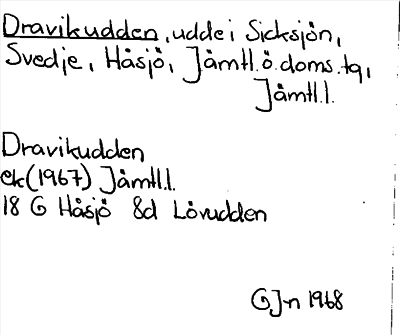 Dravikudden, udde i Sicksjön,
Svedje, Håsjö, Jämtl.ö.doms.tg,
Jämtl.l.
Dravikudden
ek(1967) Jämtl.l.
18 G Håsjö 8d Lövudden
GJ-n 1968